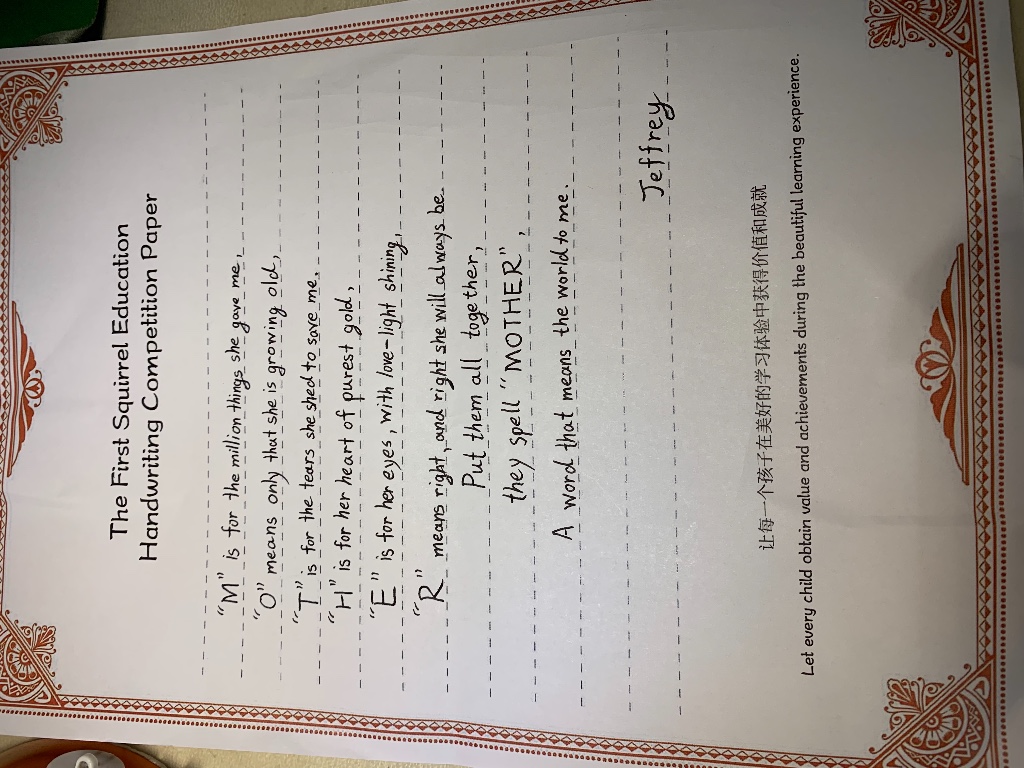 The First Squirrel Education
Handwriting Competition Paper
"M" is for the million things she gave me,
"O" means only that she is growing old,
"T" is for the tears she shed to save me,
"H" is for her heart of purest gold,
"E" is for her eyes, with love-light shining,
"R" means right, and right she will always be.
Put them all together,
they spell "MOTHER",
A word that means the world to me.
Jeffrey
让每一个孩子在美好的学习体验中获得价值和成就
Let every child obtain value and achievements during the beautiful learning experience.